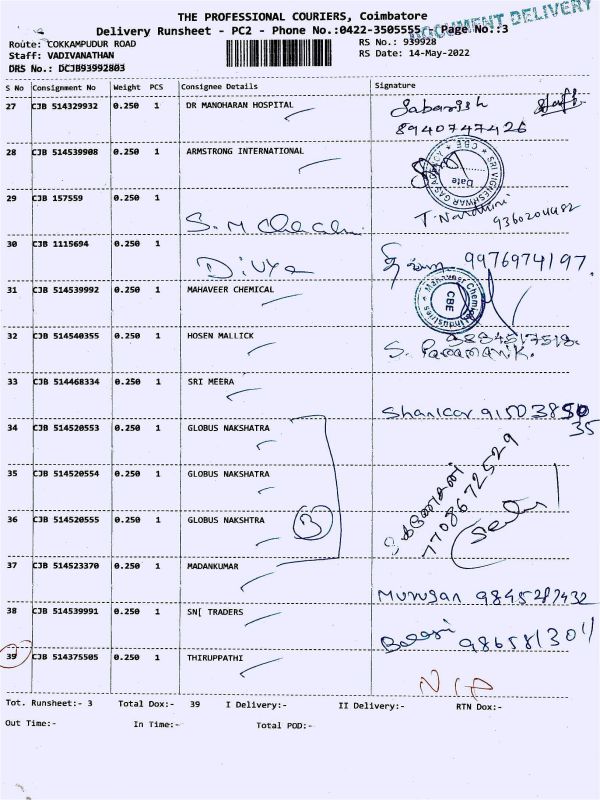 THE PROFESSIONAL COURIERS, Coimbatore
DOCUMENT DELIVERY
Delivery Runsheet - PC2 - Phone No.:0422-3505555 Page No.:3
Route: COKKAMPUDUR ROAD RS No.: 939928
Staff: VADIVANATHAN RS Date: 14-May-2022
DRS No.: DCJB93992803
S No Consignment No Weight PCS Consignee Details Signature
27 CJB 514329932 0.250 1 DR MANOHARAN HOSPITAL Sabarish Staff
8940747426
28 CJB 514539908 0.250 1 ARMSTRONG INTERNATIONAL
SRI VIGNESHWAR GAS AGENCY CBE Date
29 CJB 157559 0.250 1 T. Nandhini 9360204482
30 CJB 1115694 0.250 1 Divya 9976974197.
31 CJB 514539992 0.250 1 MAHAVEER CHEMICAL
Mahaveer Chemical Industries CBE
32 CJB 514540355 0.250 1 HOSEN MALLICK
S. Paramanik.
33 CJB 514468334 0.250 1 SRI MEERA
Shankar
34 CJB 514520553 0.250 1 GLOBUS NAKSHATRA
35 CJB 514520554 0.250 1 GLOBUS NAKSHATRA
7708672529
36 CJB 514520555 0.250 1 GLOBUS NAKSHTRA 3
37 CJB 514523370 0.250 1 MADANKUMAR
Murugan
38 CJB 514539991 0.250 1 SN[ TRADERS
Balaji
39 CJB 514375505 0.250 1 THIRUPPATHI
Tot. Runsheet:- 3 Total Dox:- 39 I Delivery:- II Delivery:- RTN Dox:-
Out Time:- In Time:- Total POD:-